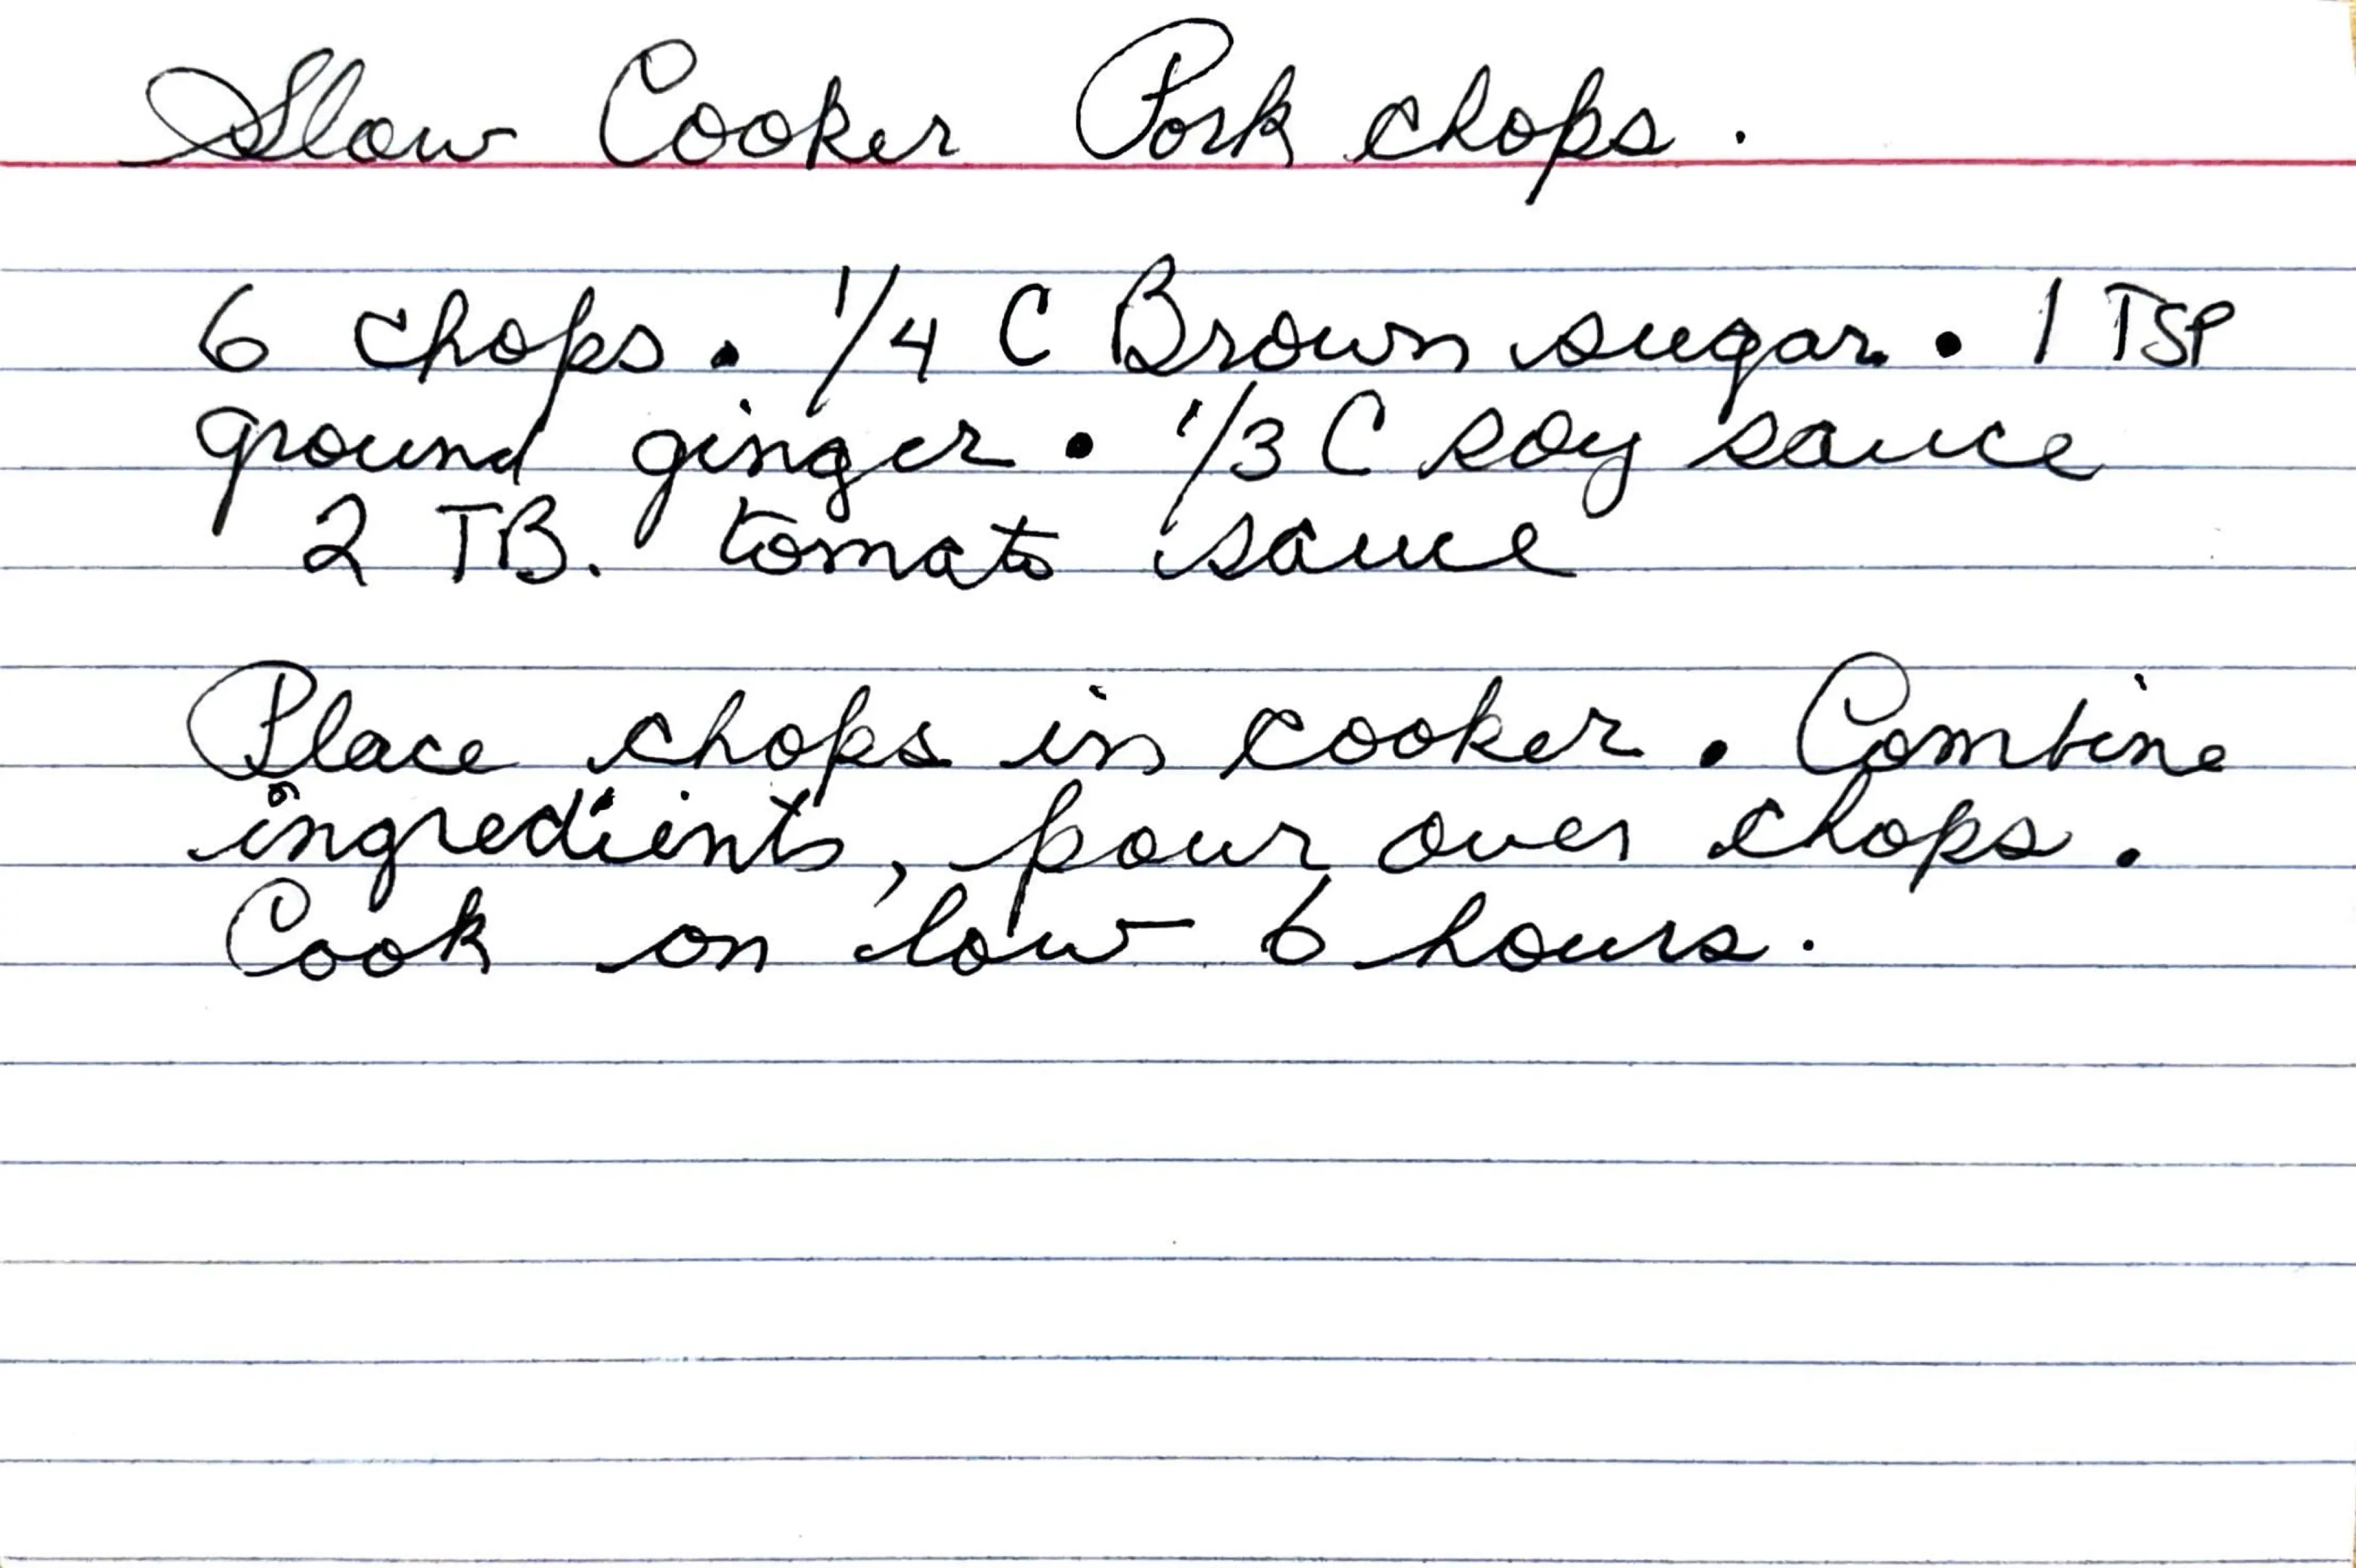 Slow Cooker Pork chops.
6 chops. 1/4 C Brown sugar. • 1 TSP
ground ginger • 1/3 C soy sauce
2 TB. tomato sauce
Place chops in cooker. Combine
ingredients, pour over chops.
Cook on low 6 hours.